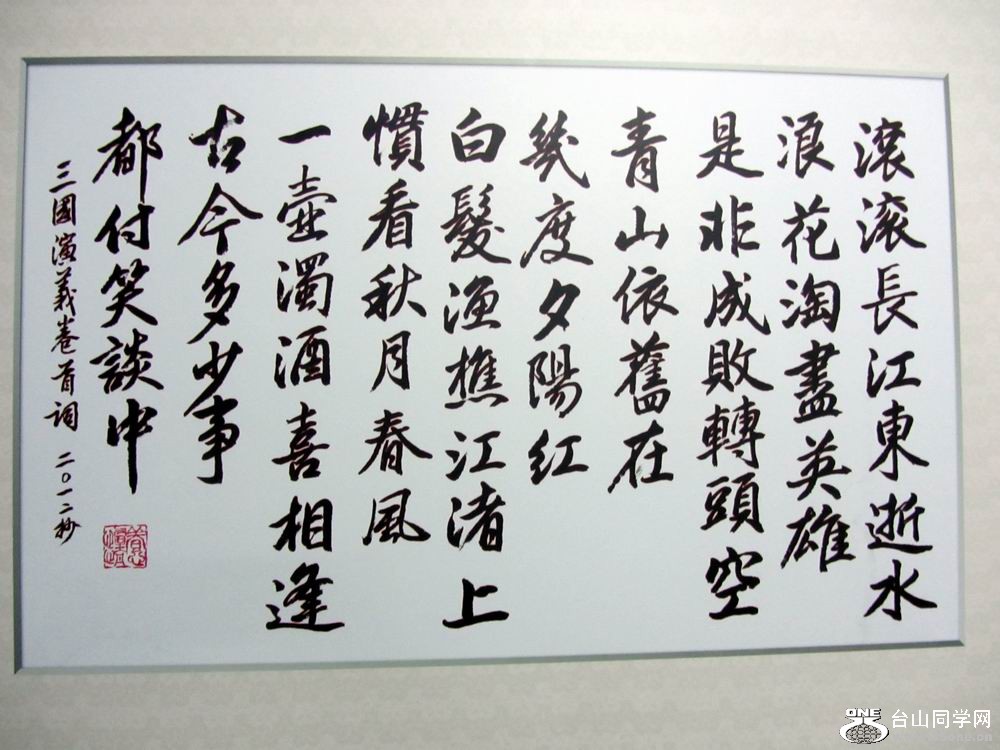 滚滚長江東逝水
浪花淘盡英雄
是非成敗轉頭空
青山依舊在
幾度夕陽紅
白髮渔樵江渚上
慣看秋月春風
一壺濁酒喜相逢
古今多少事
都付笑談中
三國演義卷首词 二〇一二秒
ONE 台山同学网